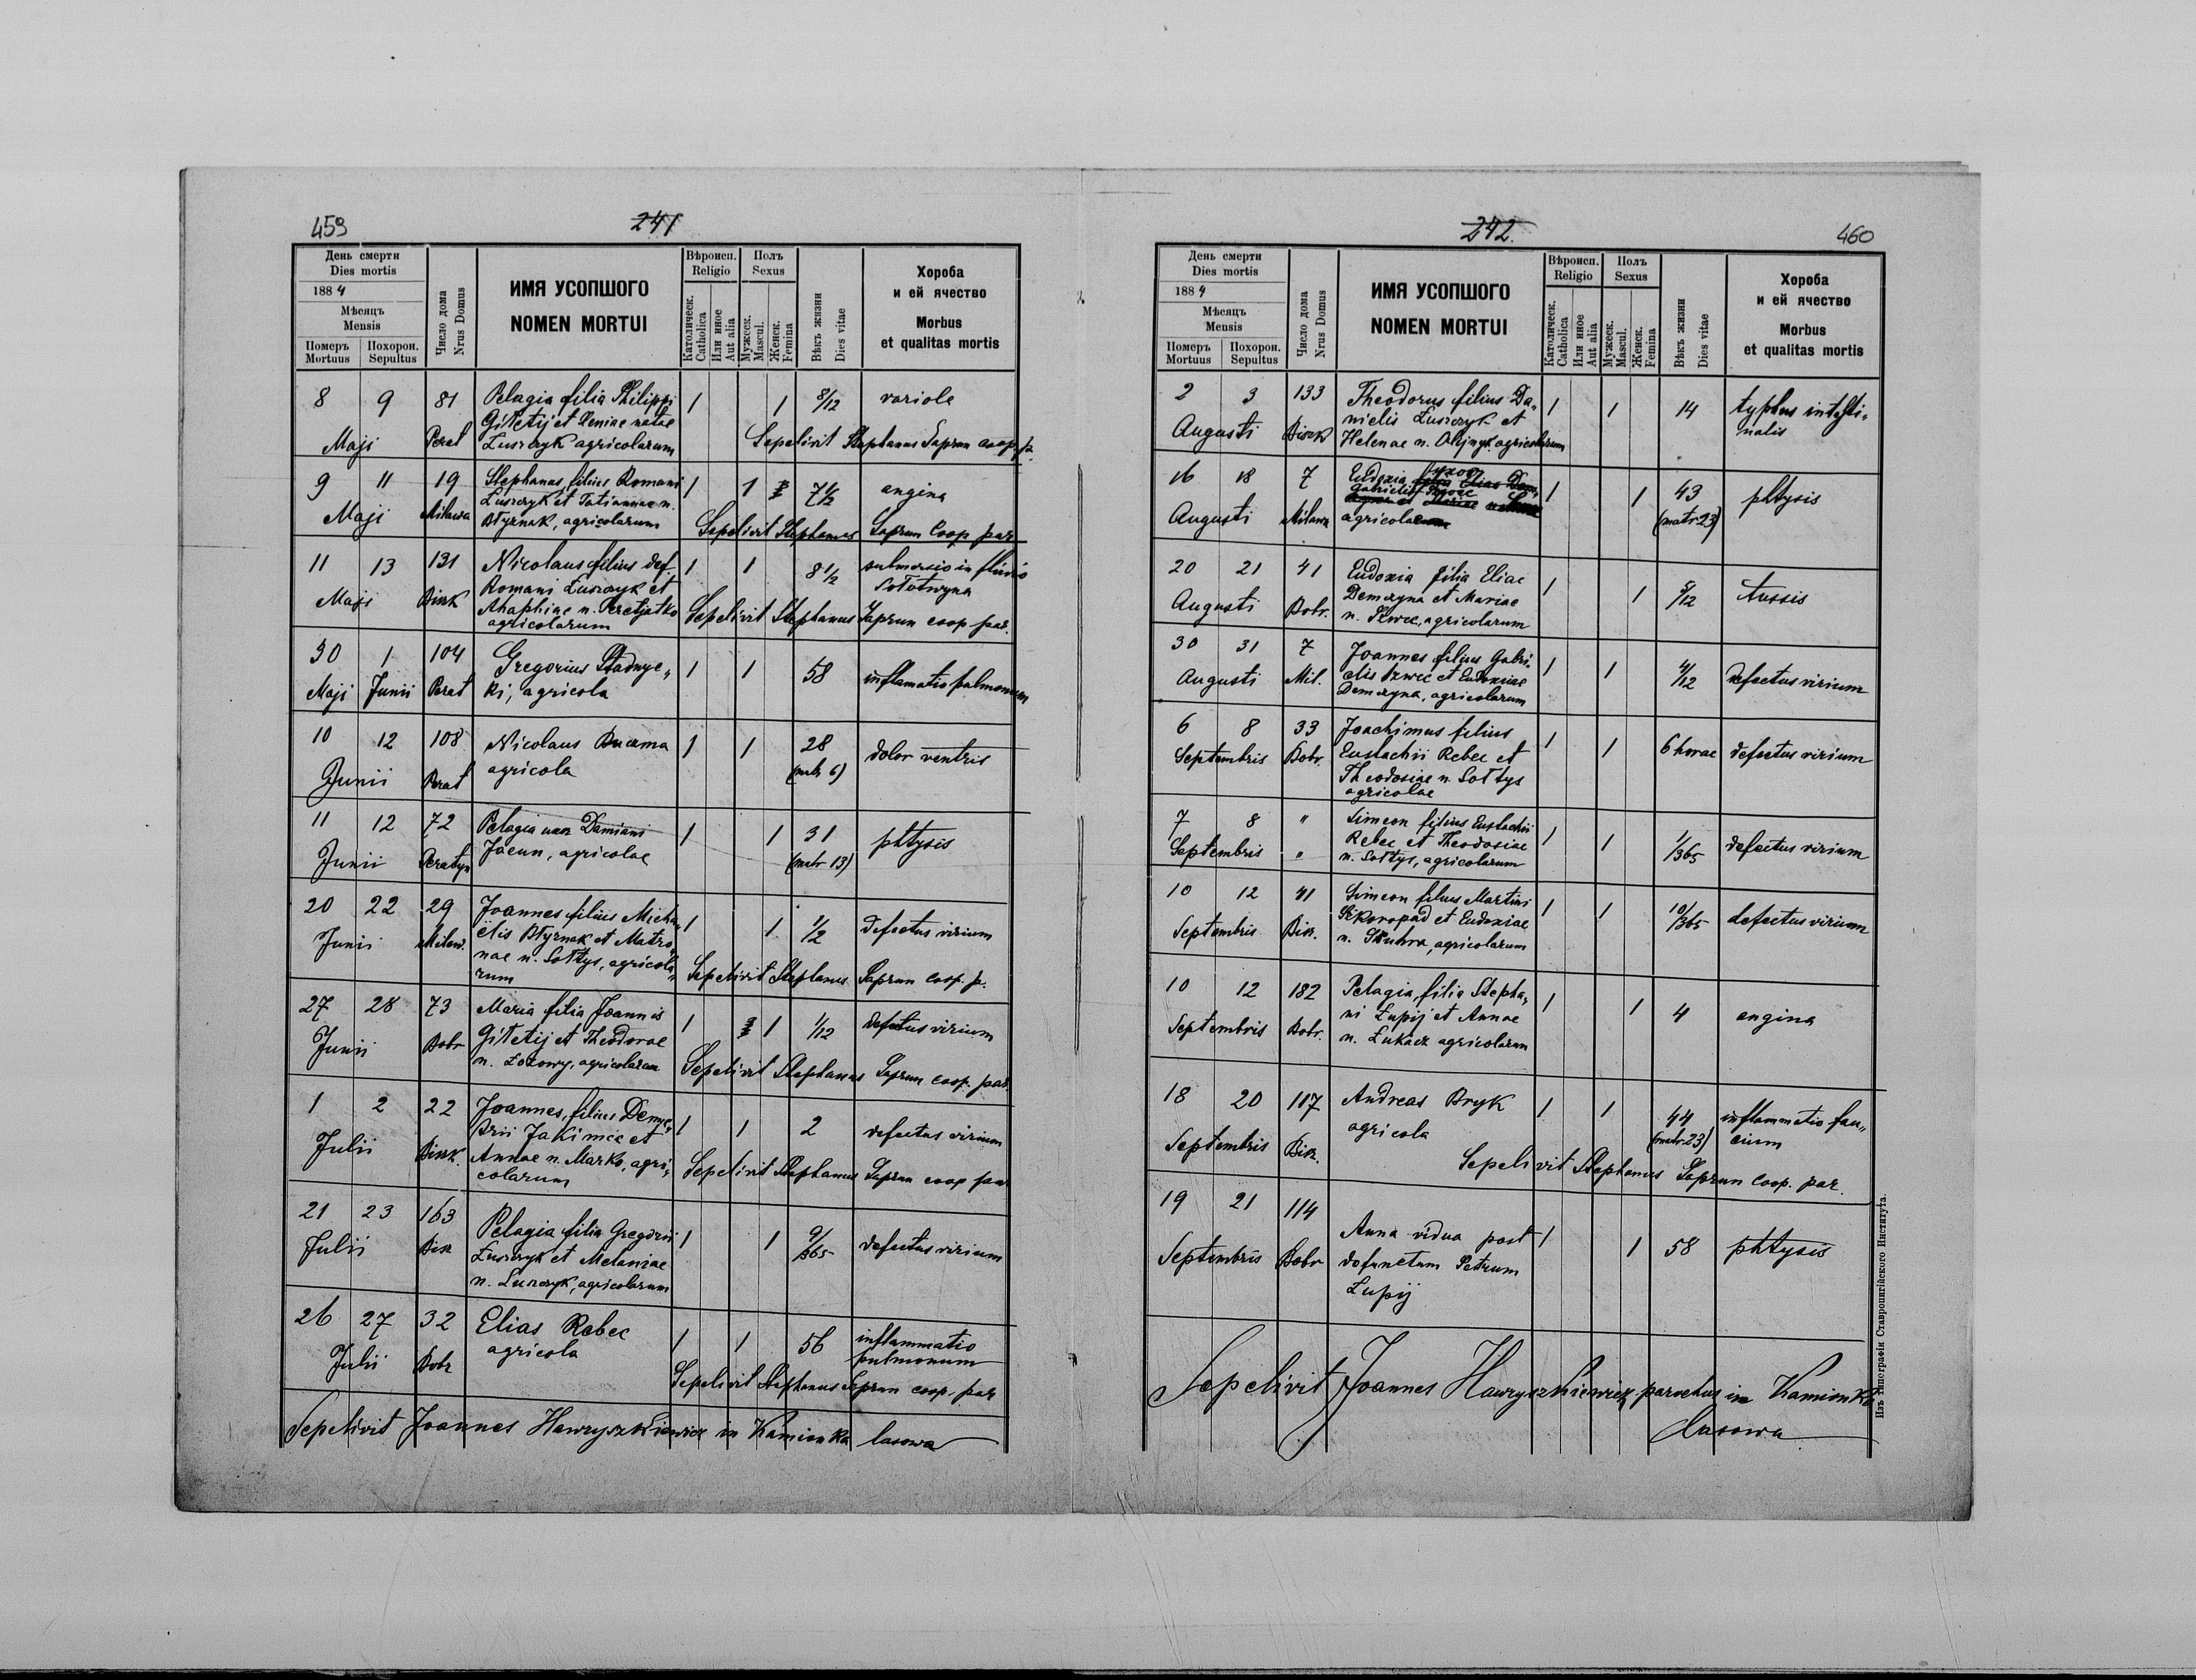 459
241
День смерти
Dies mortis
1884
Мѣсяцъ
Mensis
Померъ Похорон.
Mortuus Sepultus
Число дома
Nrus Domus
ИМЯ УСОПШОГО
NOMEN MORTUI
Вѣроисп.
Religio
Католическ.
Catholica
Или иное
Aut alia
Полъ
Sexus
Мужеск.
Mascul.
Женск.
Femina
Вѣкъ жизни
Dies vitae
Хороба
и ей ячество
Morbus
et qualitas mortis
8 9 81 Pelagia filia Philippi 1 1 8/12 variole
Giletij et Xeniae natae
Maji Perat Łuszczyk agricolarum Sepelivit Stephanus Saprun coop. p.
9 11 19 Stephanus filius Romani 1 1 7 1/2 angina
Łuszczyk et Tatiannae n.
Maji Milawa Błyznak, agricolarum Sepelivit Stephanus Saprun Coop par
11 13 131 Nicolaus filius def. 1 1 8 1/2 submersio in fluvio
Romani Łuszczyk et Sołotwyna
Maji Bisk Ahaphiae n. Peretjatko
agricolarum Sepelivit Stephanus Saprun coop par.
30 1 104 Gregorius Stadnyc„ 1 1 58 inflamatio pulmonum
Maji Junii Perat ki, agricola
10 12 108 Nicolaus Buczma 1 1 28 dolor ventris
Junii Perat agricola (matr 6)
11 12 72 Pelagia uxor Damiani 1 1 31 phtysis
Junii Peratyn Jacun, agricolae (matr 13)
20 22 29 Joannes filius Micha„ 1 1 1/2 defectus virium
Junii Milaw. elis Błyznak et Matro„
nae n. Sołtys, agricola„
rum Sepelivit Stephanus Saprun Coop. p.
27 28 73 Maria filia Joannis 1 1 1/12 defectus virium
Junii Bobr Giletij et Theodorae
n. Łozowy, agricolarum Sepelivit Stephanus Saprun coop. par
1 2 22 Joannes, filius Deme„ 1 1 2 defectus virium
trii Jakimec et
Julii Bisk. Annae n. Marko, agri„
colarum Sepelivit Stephanus Saprun coop par
21 23 163 Pelagia filia Gregorii 1 1 9/365 defectus virium
Julii Bisk Łuszczyk et Melaniae
n. Łuszczyk, agricolarum
26 27 32 Elias Rebec 1 1 56 inflammatio
Julii Bobr agricola pulmonum
Sepelivit Stephanus Saprun coop. par
Sepelivit Joannes Hawryszkiewicz in Kamionka lasowa
242.
460
День смерти
Dies mortis
1884
Мѣсяцъ
Mensis
Померъ Похорон.
Mortuus Sepultus
Число дома
Nrus Domus
ИМЯ УСОПШОГО
NOMEN MORTUI
Вѣроисп.
Religio
Католическ.
Catholica
Или иное
Aut alia
Полъ
Sexus
Мужеск.
Mascul.
Женск.
Femina
Вѣкъ жизни
Dies vitae
Хороба
и ей ячество
Morbus
et qualitas mortis
2 3 133 Theodorus filius Da„ 1 1 14 typhus intesti„
nielis Łuszczyk et nalis
Augusti Bisk Helenae n. Olijnyk agricolarum
16 18 7 Eudoxia uxor 1 1 43 phtysis
Gabrielis
Augusti Milawa agricolae (matr 23)
20 21 41 Eudoxia filia Eliae 1 1 5/12 tussis
Demczyna et Mariae
Augusti Bobr. n. Szwec, agricolarum
30 31 7 Joannes filius Gabri„ 1 1 4/12 defectus virium
Augusti Mil. elis Szwec et Eudoxiae
Demczyna, agricolarum
6 8 33 Joachimus filius 1 1 6 horae defectus virium
Septembris Bobr. Eustachii Rebec et
Theodosiae n. Sołtys
agricolae
7 8 " Simeon filius Eustachii 1 1 1/365 defectus virium
Septembris " Rebec et Theodosiae
n. Sołtys, agricolarum
10 12 41 Simeon filius Martini 1 1 10/365 defectus virium
Septembris Bisk. Szkoropad et Eudoxiae
n. Skuhra, agricolarum
10 12 182 Pelagia, filia Stepha„ 1 1 4 angina
ni Łupij et Annae
Septembris Bobr. n. Łukacz agricolarum
18 20 117 Andreas Bryk 1 1 44 inflammatio fau„
Septembris Bisk. agricola (matr 23) cium
Sepelivit Stephanus Saprun Coop. par.
19 21 114 Anna vidua post 1 1 58 phtysis
Septembris Bobr defunctum Petrum
Łupij
Sepelivit Joannes Hawryszkiewicz parochus in Kamionka
lasowa
Изъ типографіи Ставропигійского Института.